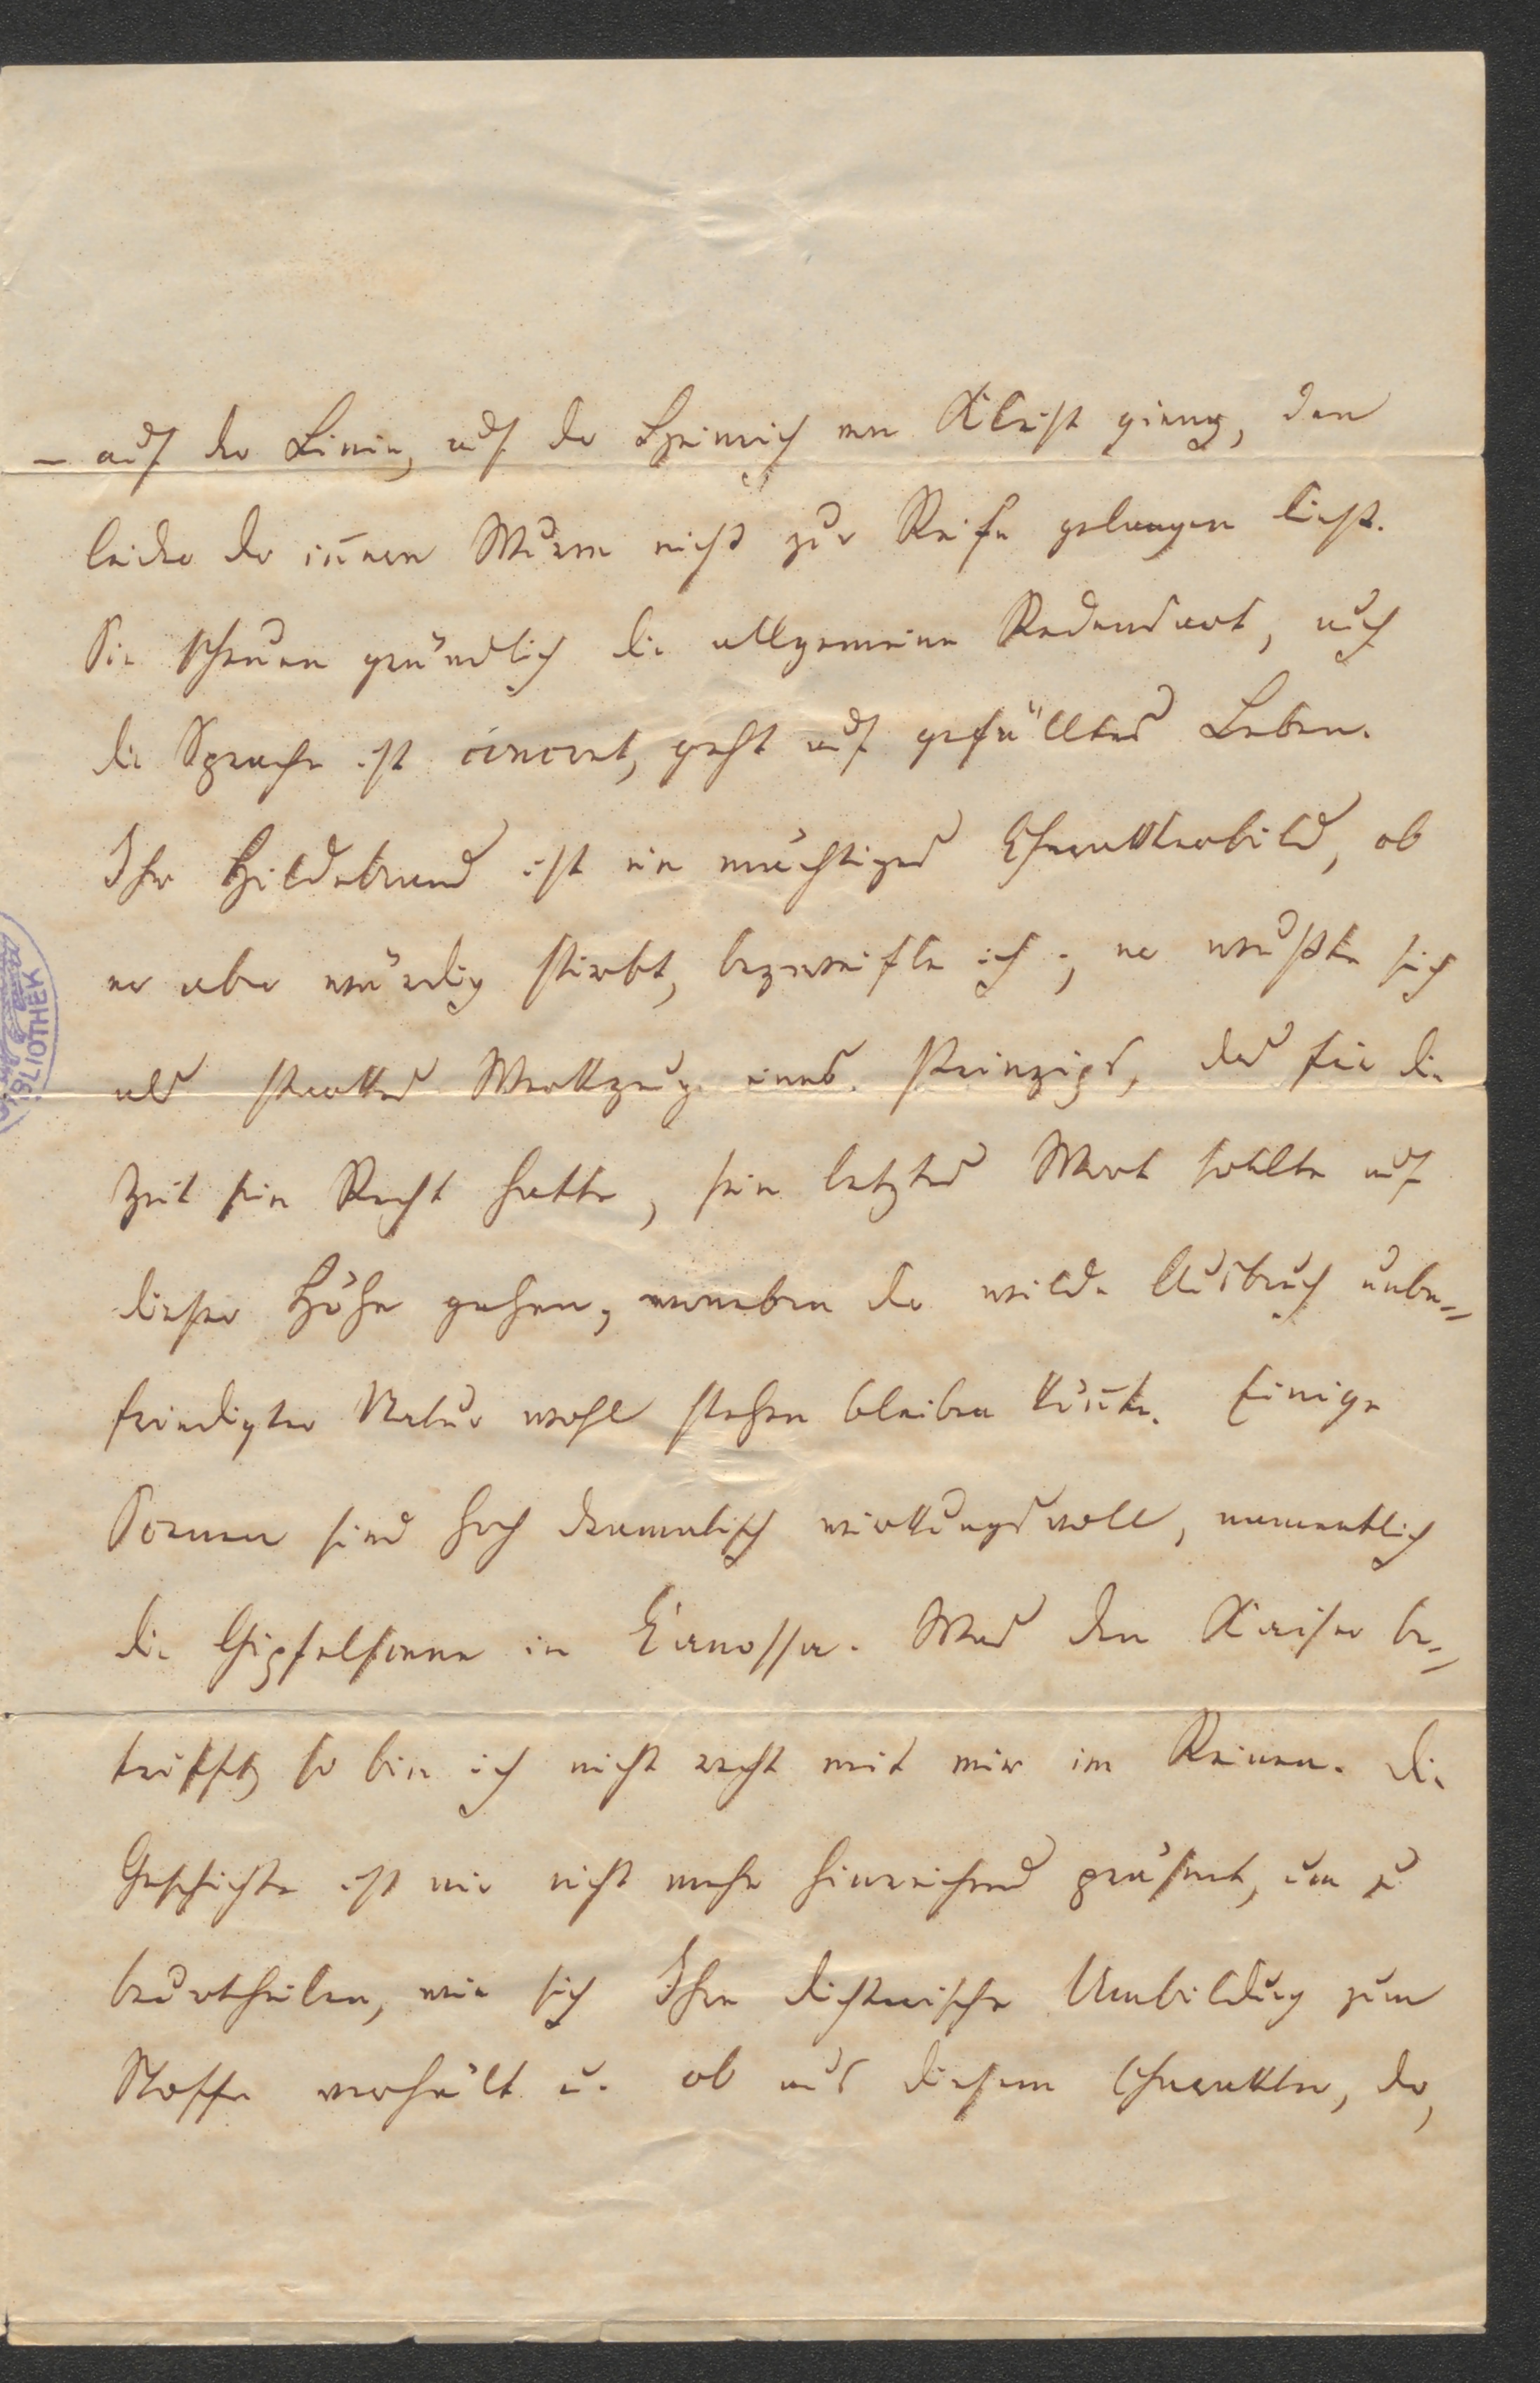 – auf der Linie, auf der Heinrich von Kleist gieng, den
leider der iñere Wurm nicht zur Reife gelangen ließ.
Sie scheuen gründlich die allgemeine Redensart, auch
die Sprache ist concret, geht auf gefülltes Leben.
Ihr Hildebrand ist ein mächtiges Charakterbild, ob
er aber würdig stirbt, bezweifle ich; er wußte sich
als starkes Werkzeug eines Prinzips, das für die
Zeit sein Recht hatte, sein letztes Wort sollte auf
dieser Höhe gehen, woneben der wilde Ausbruch unbe=
friedigter Natur wohl stehen bleiben köñte. Einige
Scenen sind hoch dramatisch wirkungsvoll, namentlich
die Gipfelscene in Canossa. Was den Kaiser be=
trifft, so bin ich nicht recht mit mir im Reinen. Die
Geschichte ist mir nicht mehr hinreichend präsent, um zu
beurtheilen, wie sich Ihre dichterische Umbildung zum
Stoffe verhält u. ob aus diesem Charakter, der,
BIBLIOTHEK